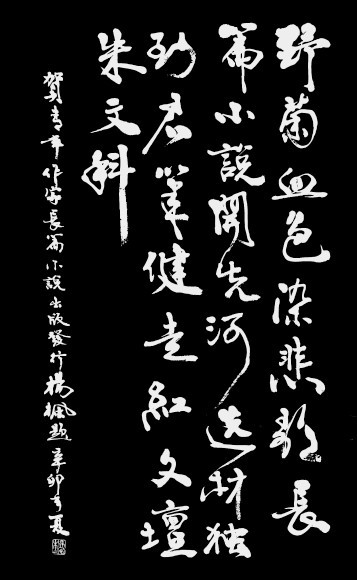 野菊血色染悲歌長
篇小說開先河選材独
到君筆健走紅文壇
朱文科
賀青年作家長篇小說出版發行楊楓題辛卯夏